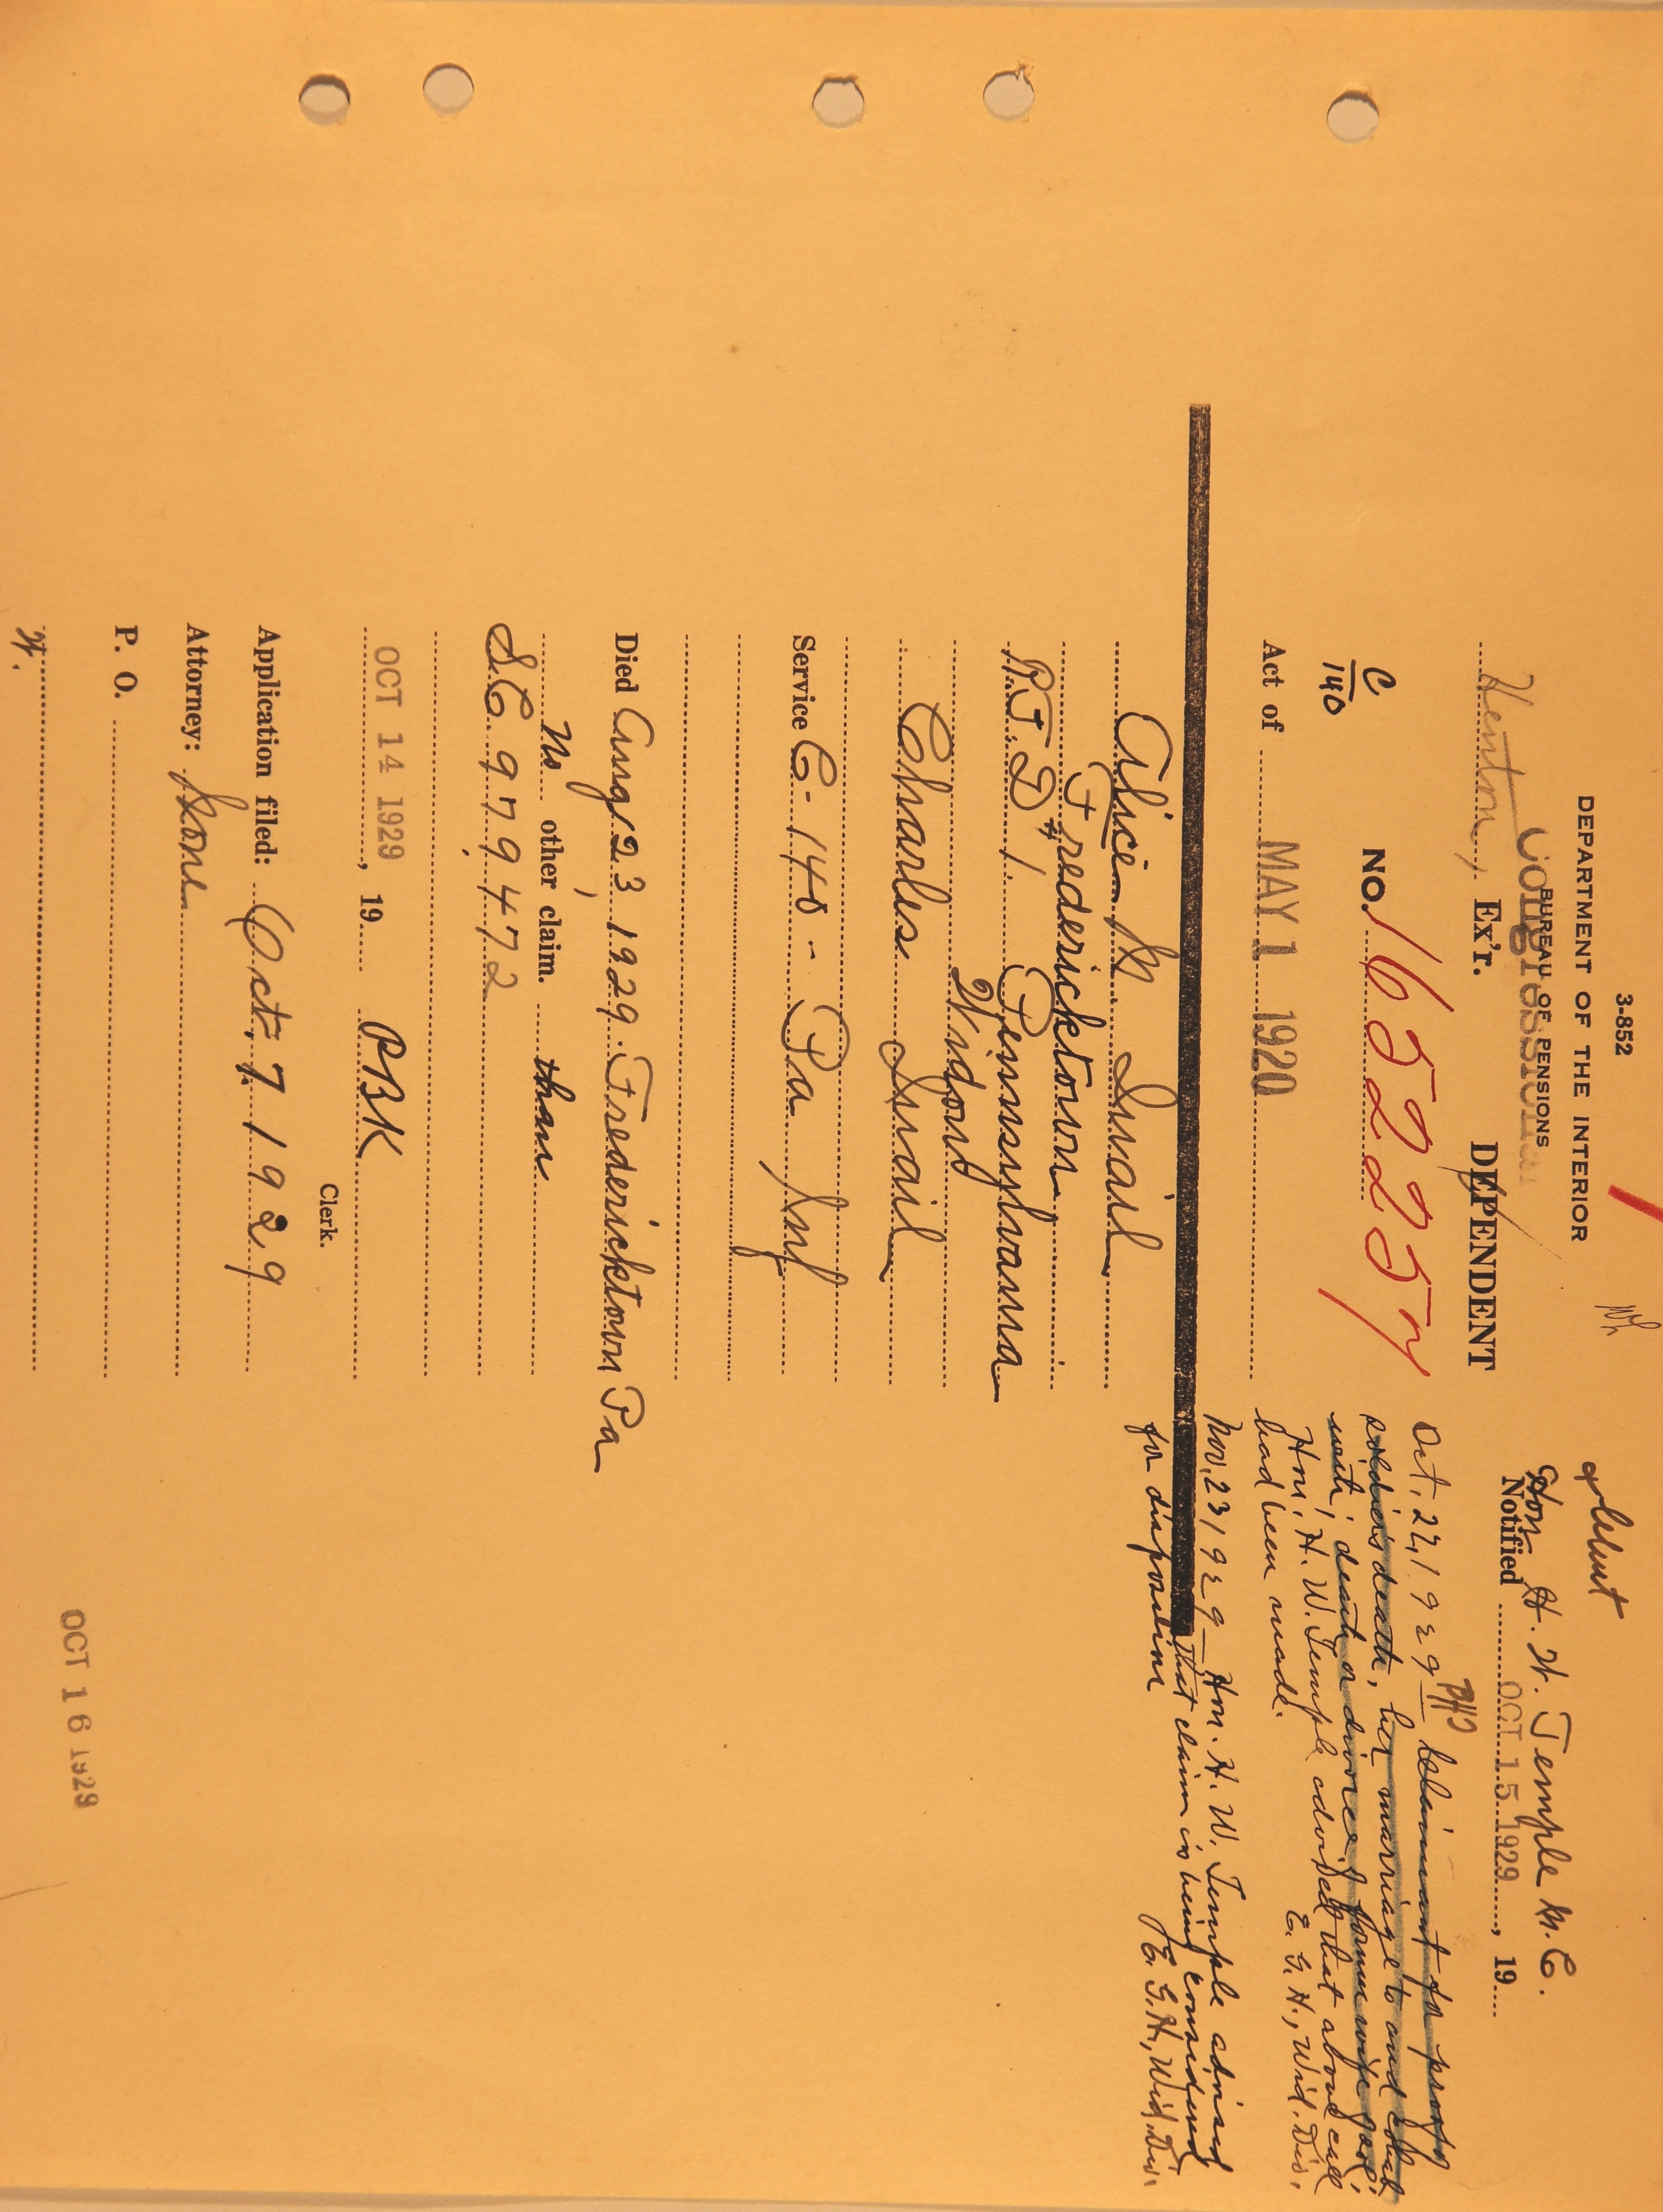 3-852
DEPARTMENT OF THE INTERIOR
BUREAU OF PENSIONS
Congressional
Henton, Ex'r. DEPENDENT
C
140
NO. 1652257
Act of MAY 1 1920
Alice M Smail
Fredericktown
R.F.D #1. Pennsylvania
Widow
Charles Smail
Service C - 140 - Pa Inf
Died Aug 23, 1929. Fredericktown Pa
No other claim. than
S.C. 979472
OCT 14 1929, 19 PBK
Clerk.
Application filed: Oct. 7 1929
Attorney: None
P. O.
W.
Hon H. W. Temple M.C.
Notified OCT 15 1929, 19
Oct. 22, 1929 Claimant for proof of
soldier's death, her marriage to and cohab.
with; death or divorce of former wife
Hon. H. W. Temple advised that above call
had been made. E. G. H., Wid. Div.
Nov. 23 1929 Hon. H. W. Temple advised
that claim is being considered
for disposition E. G. H., Wid. Div.
OCT 16 1929